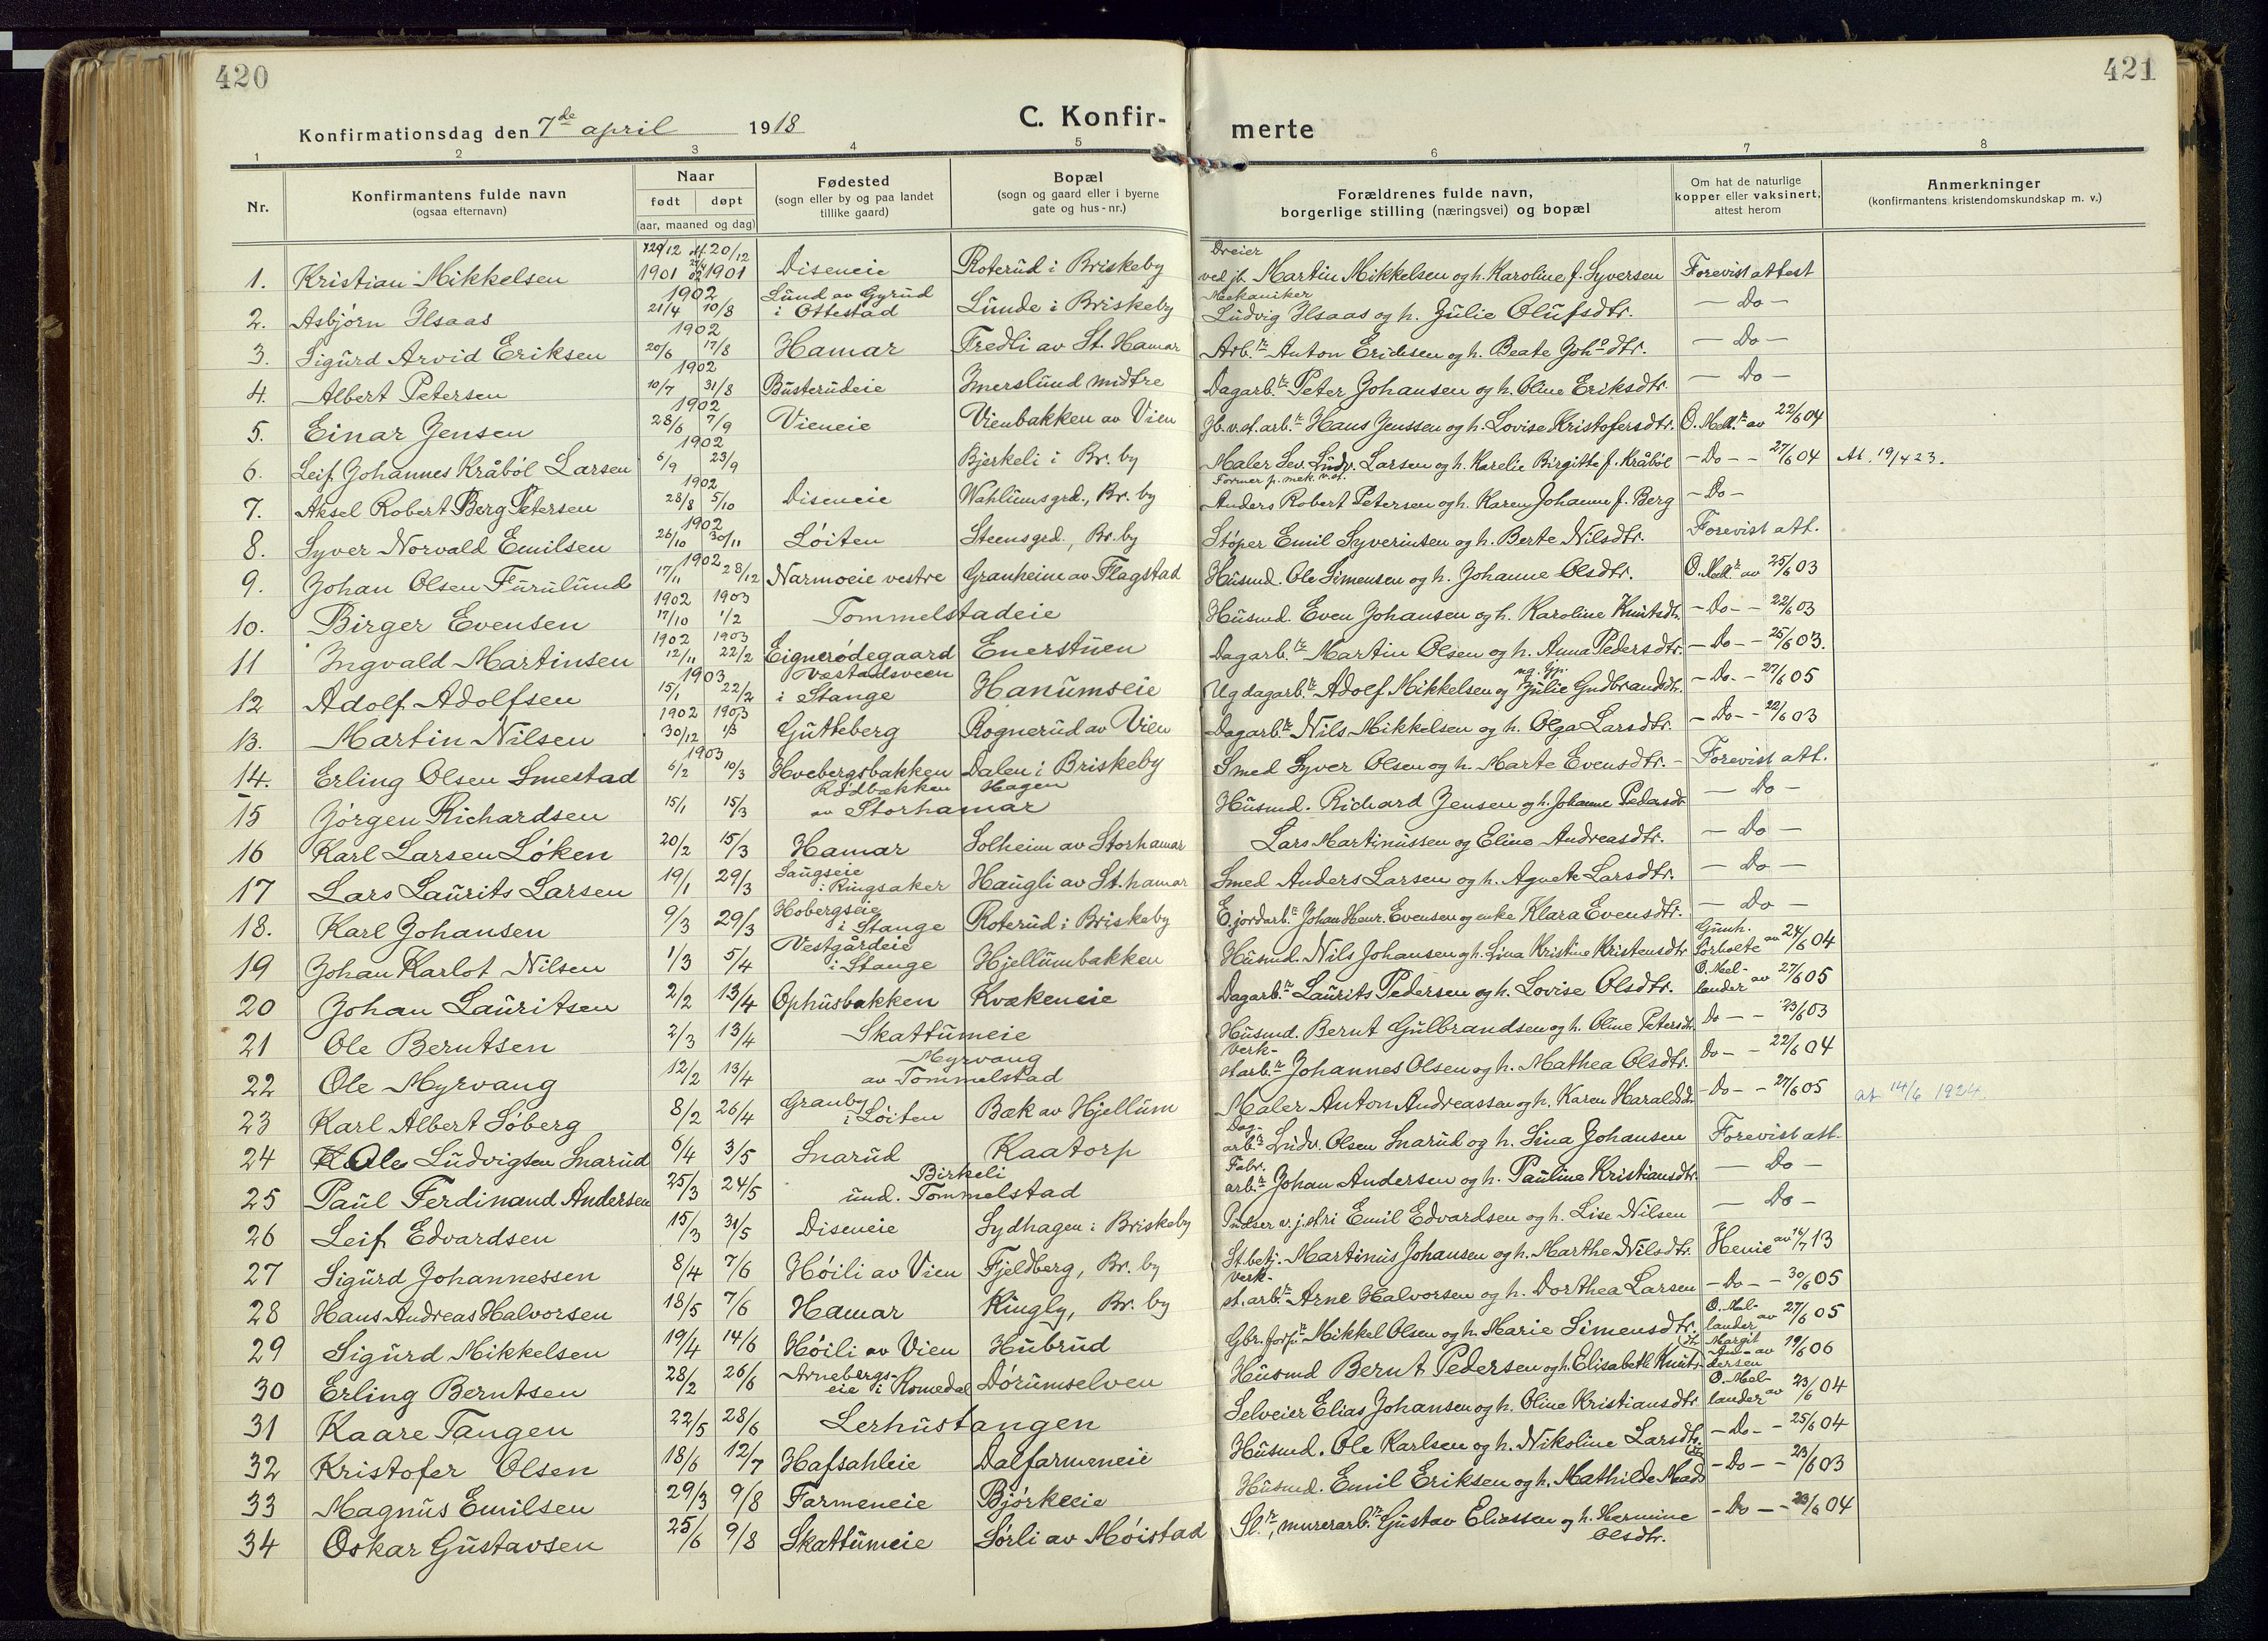 420
421
Konfirmationsdag den 7de april 1918
C. Konfir-
merte
1 2 3 4 5 6 7 8
Nr.
Konfirmantens fulde navn
(ogsaa efternavn)
Naar
født døpt
(aar, maaned og dag)
Fødested
(sogn eller by og paa landet
tillike gaard)
Bopæl
(sogn og gaard eller i byerne
gate og hus-nr.)
Forældrenes fulde navn,
borgerlige stilling (næringsvei) og bopæl
Om hat de naturlige
kopper eller vaksinert,
attest herom
Anmerkninger
(konfirmantens kristendomskundskap m. v.)
1. Kristian Mikkelsen 1901 1901 Diseneie Roterud i Briskeby Dreier ved jb. Martin Mikkelsen og h. Karoline f. Syversen Forevist attest
2. Asbjørn Ilsaas 1902 21/4 10/8 Lund av Gyrud i Ottestad Lunde i Briskeby Mekaniker Ludvig Ilsaas og h. Julie Olufsdtr. - Do -
3. Sigurd Arvid Eriksen 1902 20/6 17/8 Hamar Fredli av St. Hamar Arb.r Anton Eriksen og h. Beate Joh.dtr. - Do -
4. Albert Petersen 1902 10/7 31/8 Busterudeie Imerslund midtre Dagarb.r Peter Johansen og h. Oline Eriksdtr. - Do -
5. Einar Jensen 1902 28/6 7/9 Vieneie Vienbakken av Vien Jb.v.st.arb.r Hans Jenssen og h. Lovise Kristofersdtr. O. Mell.r av 22/6 04
6. Leif Johannes Kråbøl Larsen 1902 6/9 23/9 Bjerkeli i Br. by Maler Sev. Ludv. Larsen og h. Karelie Birgitte f. Kråbøl - Do - - 27/6 04 At. 19/4 23.
7. Aksel Robert Berg Petersen 1902 28/8 5/10 Diseneie Wahlumsgrd., Br. by Former p. mek. v.st. Anders Robert Petersen og h. Karen Johanne f. Berg - Do -
8. Syver Norvald Emilsen 1902 26/10 30/11 Løiten Steensgrd., Br. by Støper Emil Syverinsen og h. Berte Nilsdtr. Forevist att.
9. Johan Olsen Furulund 1902 17/11 28/12 Narmoeie vestre Granheim av Flagstad Husmd. Ole Simensen og h. Johanne Olsdtr. O. Mell.r av 25/6 03
10. Birger Evensen 1902 1903 17/10 1/2 Tommelstadeie Husmd. Even Johansen og h. Karoline Knutsdtr. - Do - - 22/6 03
11 Ingvald Martinsen 1902 1903 12/11 22/2 Eignerødegaard Enerstuen Dagarb.r Martin Olsen og h. Anna Pedersdtr. - Do - - 25/6 03.
12 Adolf Adolfsen 1903 15/1 22/2 Væstadsveen i Stange Hanumseie Ug dagarb.r Adolf Mikkelsen og Julie Gudbrandsdtr. - Do - - 27/6 05
13. Martin Nilsen 1902 1903 30/12 1/3 Gutteberg Rognerud av Vien Dagarb.r Nils Mikkelsen og h. Olga Larsdtr. - Do - - 22/6 03
14. Erling Olsen Smestad 1903 6/2 10/3 Hvebergsbakken Dalen i Briskeby Smed Syver Olsen og h. Marte Evensdtr. - Forevist att.
15 Jørgen Richardsen 15/1 15/3 Rødbækken Hagen av Storhamar Husmd. Richard Jensen og h. Johanne Pedersdtr - Do -
16 Karl Larsen Løken 20/2 15/3 Hamar Solheim av Storhamar Lars Martinussen og Eline Andreasdtr. - Do -
17 Lars Laurits Larsen 19/1 29/3 Saugseie i Ringsaker Haugli av St.hamar Smed Anders Larsen og h. Agnete Larsdtr. - Do -
18. Karl Johansen 9/3 29/3 Hobergseie i Stange Roterud i Briskeby E. jordarb.r Johan Henr. Evensen og enke Klara Evensdtr. - Do -
19 Johan Karlot Nilsen 1/3 5/4 Vestgårdeie i Stange Hjellumbakken Husmd. Nils Johansen og h. Lina Kristine Kristensdtr Gunh. Sørholte av 24/6 04
20 Johan Lauritsen 2/2 13/4 Ophusbakken Kvækeneie Dagarb.r Laurits Pedersen og h. Lovise Olsdtr. O. Mellander av 27/6 05
21 Ole Berntsen 2/3 13/4 Skattumeie Husmd. Bernt Gulbrandsen og h. Oline Petersdtr Do - - 23/6 03
22 Ole Myrvang 12/2 13/4 Myrvang av Tommelstad Verk-starb.r Johannes Olsen og h. Mathea Olsdtr. Do - - 22/6 04
23 Karl Albert Søberg 8/2 26/4 Granby i Løiten Bæk av Hjellum Maler Anton Andreassen og h. Karen Haraldsdtr - Do - - 27/6 05 at 14/6 1924
24 Ole Ludvigsen Snarud 6/4 3/5 Snarud Kaatorp Dag-arb.r Ludv. Olsen Snarud og h. Lina Johansen Forevist att.
25 Paul Ferdinand Andersen 25/3 24/5 Birkeli und. Tommelstad Fabr. arb.r Johan Andersen og h. Pauline Kristiansdtr. - Do -
26 Leif Edvardsen 15/3 31/5 Diseneie Sydhagen i Briskeby Pudser v. j.stri Emil Edvardsen og h. Lise Nilsen - Do -
27 Sigurd Johannessen 8/4 7/6 Høili av Vien Fjeldberg, Br. by St.betj. Martinus Johansen og h. Marthe Nilsdtr. Henie av 16/7 13
28 Hans Andreas Halvorsen 18/5 7/6 Hamar Kingly, Br. by Verk-st.arb.r Arne Halvorsen og h. Dorthea Larsen - Do - - 30/6 05
29 Sigurd Mikkelsen 19/4 14/6 Høili av Vien Hubrud Gbr.forp.r Mikkel Olsen og h. Marie Simensdtr. O. Mellander av 27/6 05
30 Erling Berntsen 28/2 26/6 Arnebergs-eie i Romedal Dørumselven Husmd Bernt Pedersen og h. Elisabeth Knuts-dtr Margit Andersen av 19/6 06
31 Kaare Tangen 22/5 28/6 Lerhustangen Selveier Elias Johansen og h. Oline Kristiansdtr O. Mellander av 23/6 04
32 Kristofer Olsen 18/6 12/7 Hafsahleie Dalfarmeneie Husmd. Ole Karlsen og h. Nikoline Larsdtr. - Do - - 25/6 04
33 Magnus Emilsen 29/3 9/8 Farmeneie Bjørkeeie Husmd. Emil Eriksen og h. Mathilde Mads dtr - Do - - 23/6 03
34 Oskar Gustavsen 25/6 9/8 Skattumeie Sørli av Møistad Sl.r, murerarb.r Gustav Eliassen og h. Hermine Olsdtr. - Do - - 23/6 04